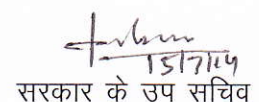 15/7/14
सरकार के उप सचिव